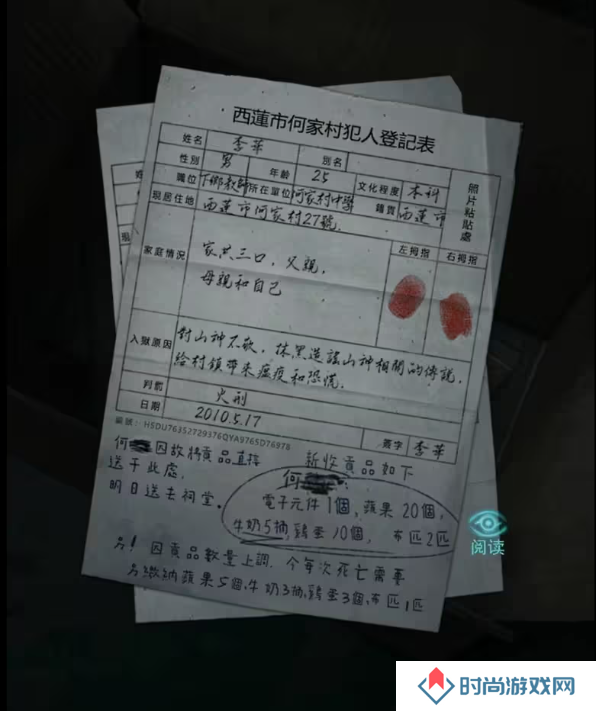 西蓮市何家村犯人登記表
姓名 李華 別名
性別 男 年齡 25 文化程度 本科
職位 下鄉教師 所在單位 何家村中學 籍貫 西蓮市
現居住地 西蓮市何家村27號
照片粘貼處
家庭情況 家共三口，父親，
母親和自己
左拇指 右拇指
入獄原因 對山神不敬，抹黑造謠山神相關的傳說，
給村鎮帶來瘟疫和恐慌。
判罰 火刑
日期 2010.5.17 簽字 李華
編號：HSDU76352729376QYA9765D76978
何 因故將貢品直接
送于此處，
明日送去祠堂。
新收貢品如下
何
電子元件1個，蘋果20個，
牛奶5抽，鷄蛋10個，布匹2匹
另！因貢品數量上調，今每次死亡需要
另繳納蘋果5個，牛奶3抽，鷄蛋3個，布匹1匹
阅读
时尚游戏网